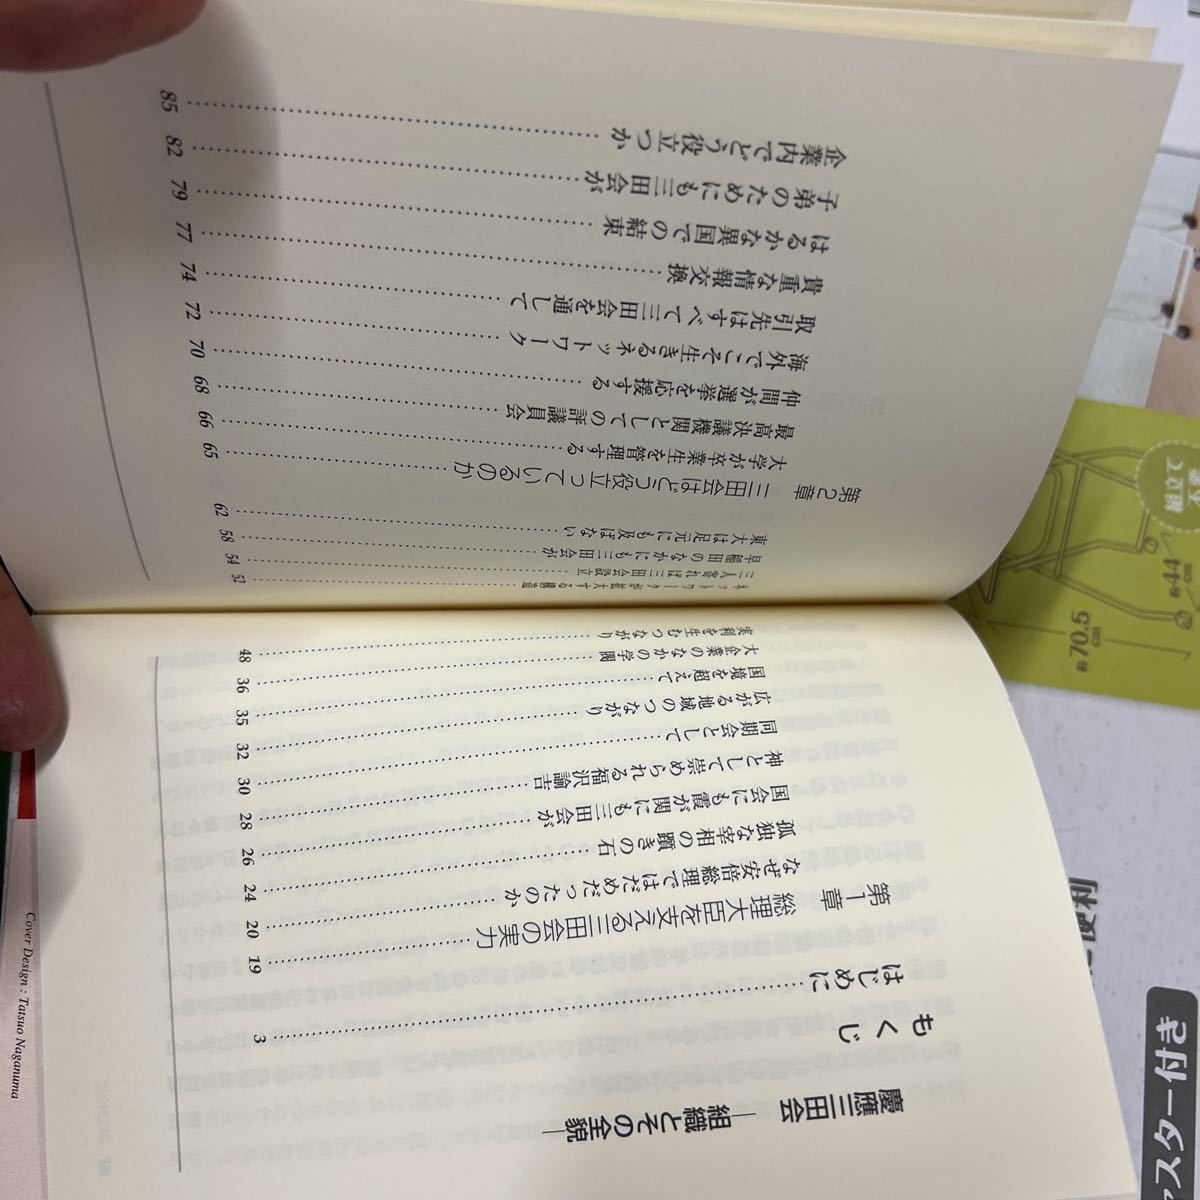 慶應三田会
―組織とその全貌―
もくじ
はじめに 3
第1章 総理大臣を支える三田会の実力 19
なぜ安倍総理ではだめだったのか 20
孤独な宰相の躓きの石 24
国会にも霞が関にも三田会が 26
神として崇められる福沢諭吉 28
同期会として 30
広がる地域のつながり 32
国境を超えて 35
大企業のなかの学閥 36
実利を生むつながり 48
ネットワークが拡大する構造 52
三人寄れば三田会成立 54
早稲田のなかにも三田会が 58
東大は足元にも及ばない 62
第2章 三田会はどう役立っているのか 65
大学が卒業生を管理する 66
最高決議機関としての評議員会 68
仲間が選挙を応援する 70
海外でこそ生きるネットワーク 72
取引先はすべて三田会を通して 74
貴重な情報交換 77
はるかな異国での結束 79
子弟のためにも三田会が 82
企業内でどう役立つか 85
Cover Design : Tatsuo Naganuma
約70.5cm
約44cm
便利
スター付き